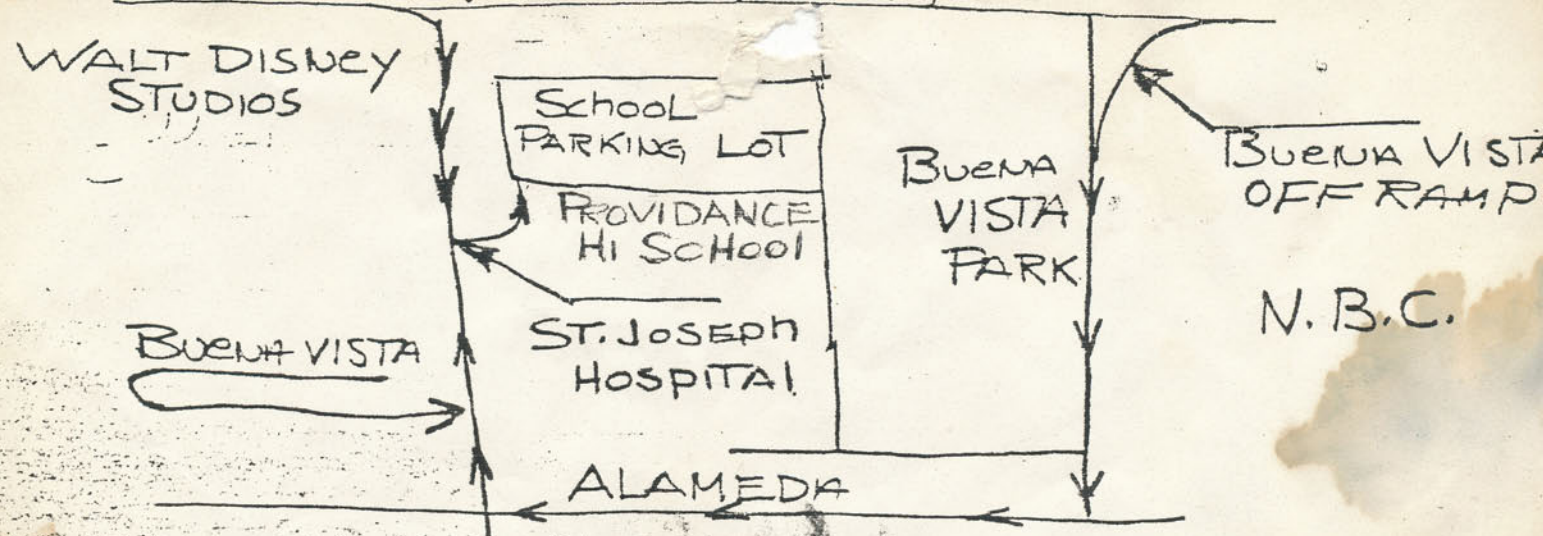 WALT DISNEY
STUDIOS
SCHOOL
PARKING LOT
PROVIDANCE
HI SCHOOL
ST. JOSEPH
HOSPITAL
BUENA VISTA
ALAMEDA
BUENA
VISTA
PARK
BUENA VISTA
OFF RAMP
N.B.C.